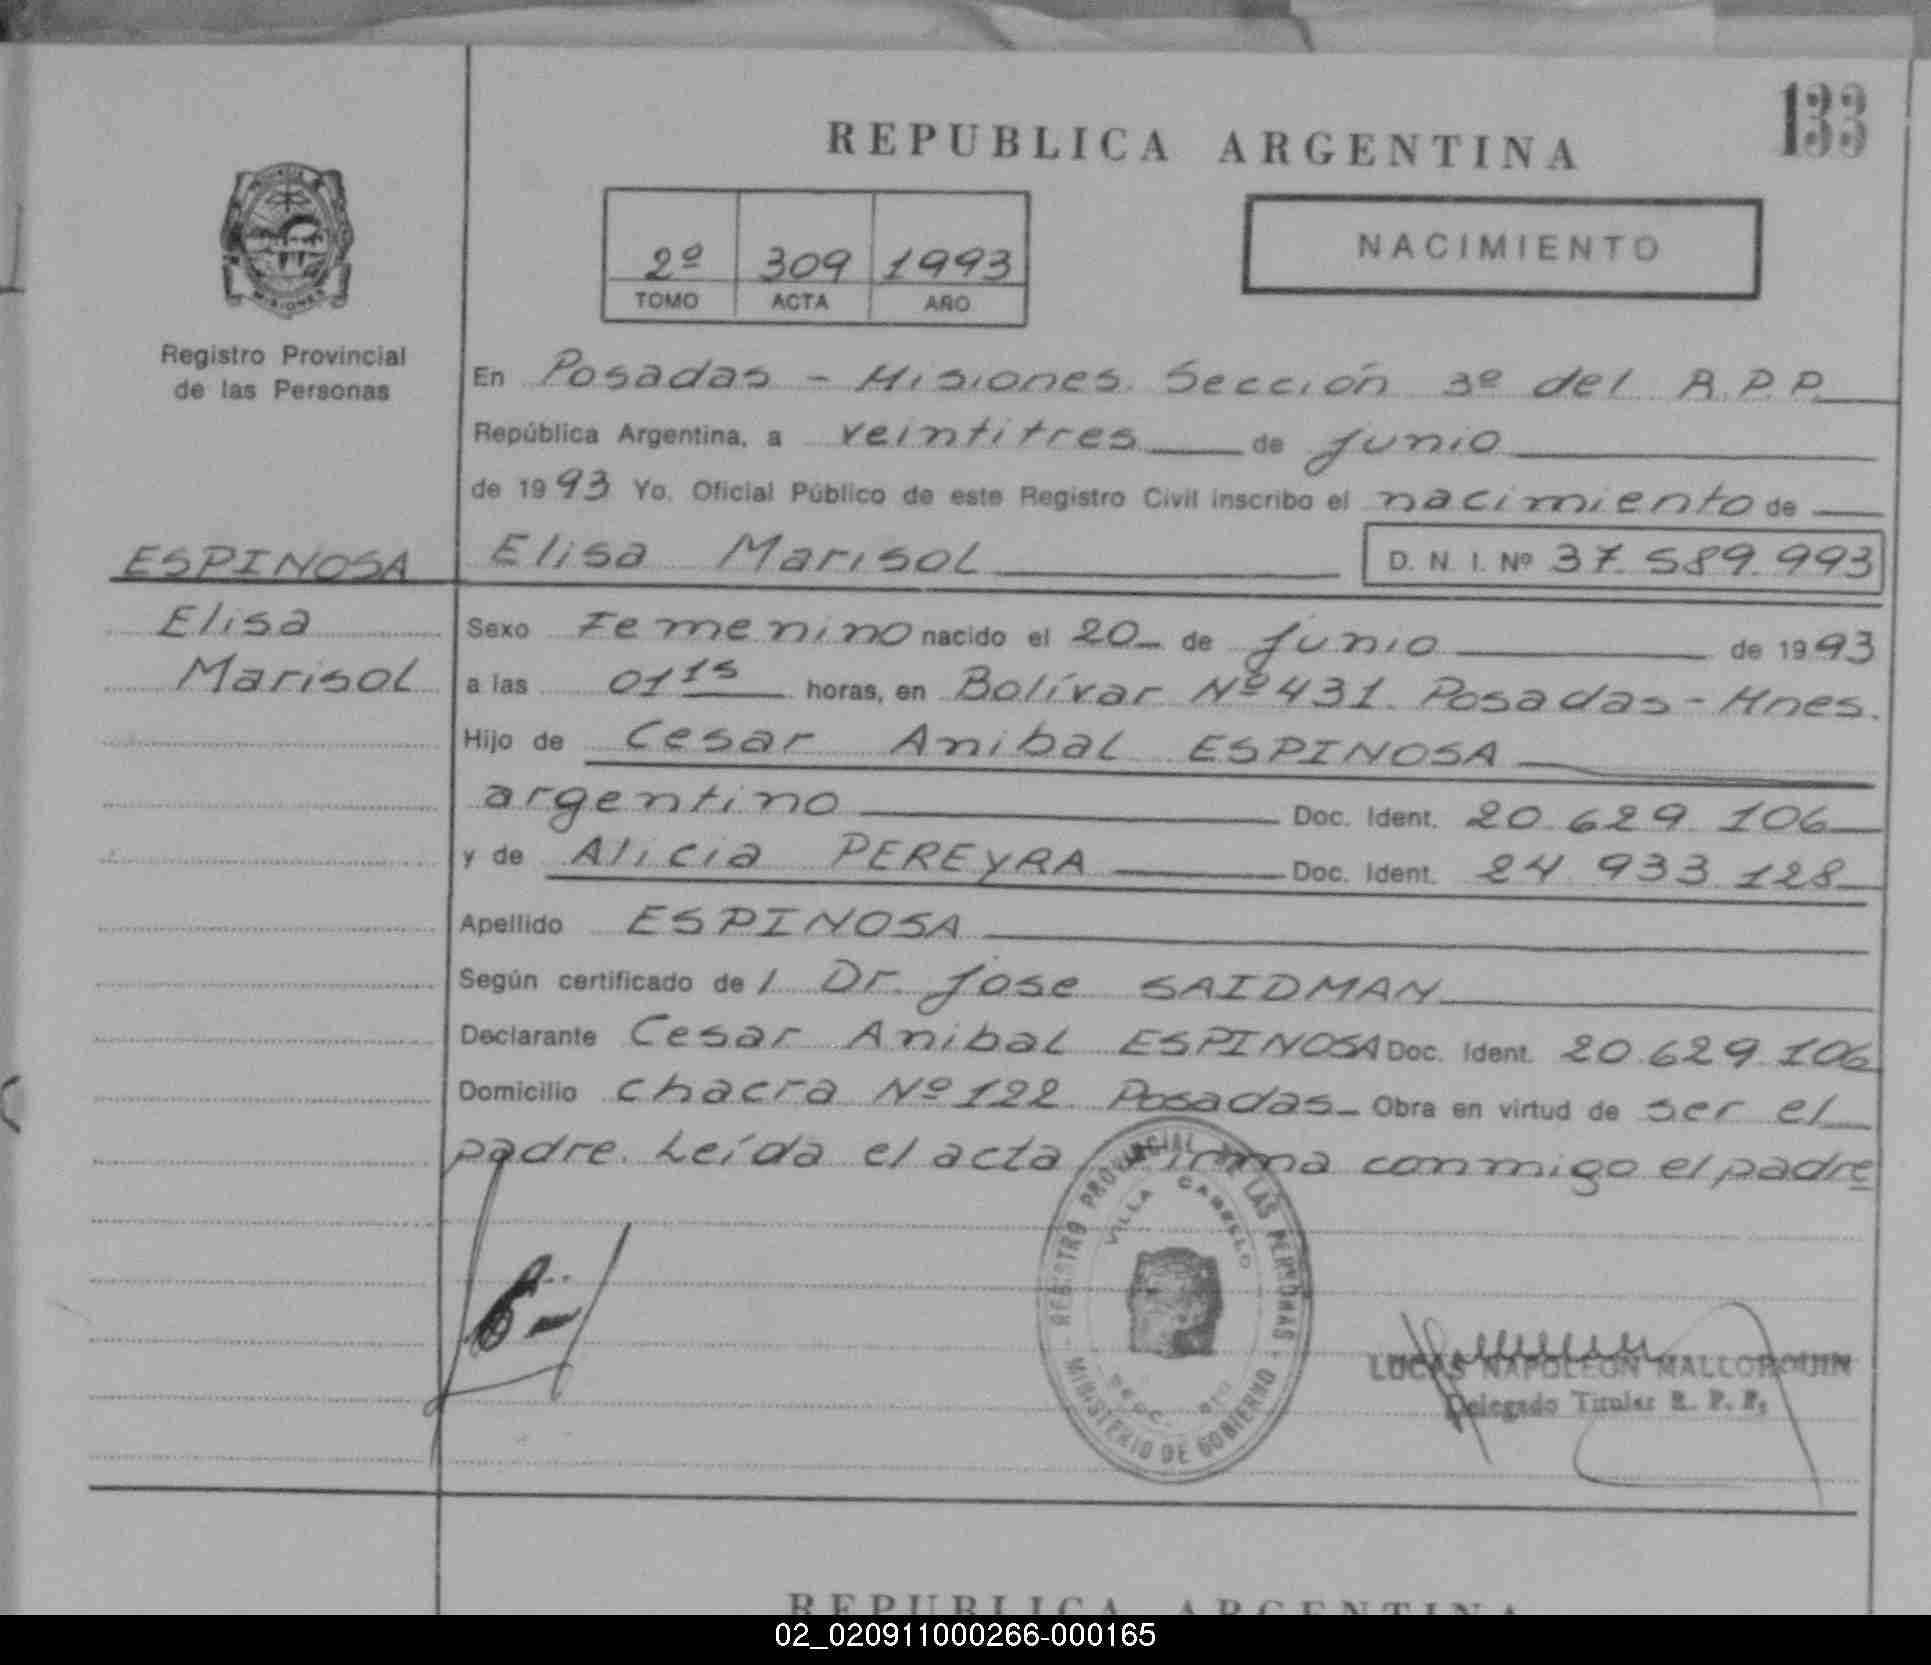 133
REPUBLICA ARGENTINA
2º 309 1993
TOMO ACTA AÑO
NACIMIENTO
PROVINCIA DE MISIONES
Registro Provincial
de las Personas
En Posadas - Misiones. Sección 3º del R.P.P.
República Argentina, a veintitres de junio
de 1993 Yo, Oficial Público de este Registro Civil inscribo el nacimiento de
ESPINOSA Elisa Marisol D. N. I. Nº 37.589.993
Elisa
Marisol
Sexo Femenino nacido el 20 de junio de 1993
a las 01 15 horas, en Bolívar Nº 431. Posadas - Mnes.
Hijo de Cesar Anibal ESPINOSA
argentino Doc. Ident. 20.629.106
y de Alicia PEREYRA Doc. Ident. 24.933.128
Apellido ESPINOSA
Según certificado de l Dr. Jose SAIDMAN
Declarante Cesar Anibal ESPINOSA Doc. Ident. 20.629.106
Domicilio chacra Nº 122 Posadas- Obra en virtud de ser el
padre. Leída el acta firma conmigo el padre
REGISTRO PROVINCIAL DE LAS PERSONAS
VILLA CABELLO
MINISTERIO DE GOBIERNO
LUCAS NAPOLEON MALLORQUIN
Delegado Titular R. P. P.
REPUBLICA ARGENTINA
02_020911000266-000165